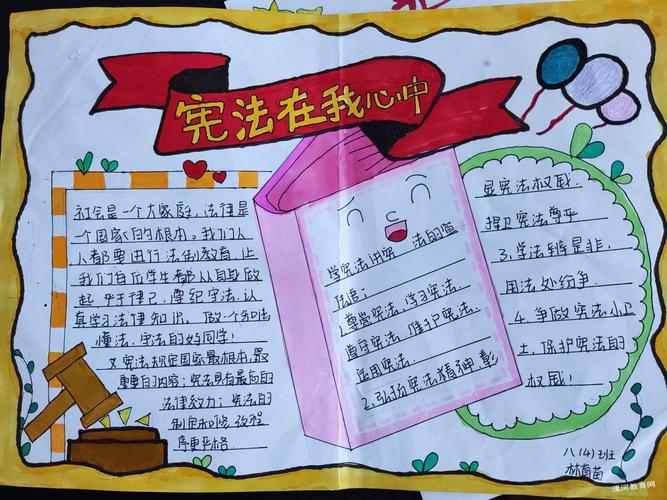 宪法在我心中
社会是一个大家庭,法律是
一个国家的根本。我们人
人都要进行法制教育,让
我们每位学生都从自身做
起,严于律己,遵纪守法,认
真学习法律知识,做一个知法
懂法、守法的好同学!
宪法规定国家最根本,最
重要的内容;宪法具有最高的
法律效力;宪法的
制定和修改程
序更严格
学宪法讲宪法的宣
传语:
1.尊崇宪法,学习宪法,
遵守宪法,维护宪法,
运用宪法
2.弘扬宪法精神,彰
显宪法权威
捍卫宪法尊严
3.学法辨是非,
用法处纷争
4.争做宪法小卫
士,保护宪法的
权威!
八(4)班
林育苗
漯河教育网